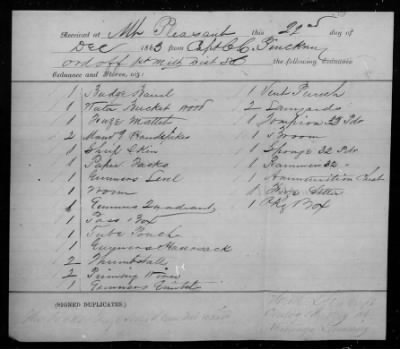 Received at Mt Pleasant this 22nd day of
Dec 1863 from Capt C C Pinckney
ord off 1st Milt Dist SC the following Ordnance
Ordnance and Stores, viz:
1 Budge Barrel
1 Water Bucket wood
1 Fuze Mallet
2 Manv'g Handspikes
1 Sheep Skin
1 Gunners Level
1 Broom
1 Gunners Quadrant
1 Pass Box
1 Tube Pouch
1 Gunners Haversack
2 Thumbstalls
2 Priming Wires
1 Gunners Gimlet
1 Vent Punch
2 Lanyards
1 Tompion 32 Pdr
1 Broom
1 Sponge 32 Pdr
1 Rammer 32 "
1 Ammunition Chest
1 Fuze Setter
1 Pkg Box
(SIGNED DUPLICATES.)